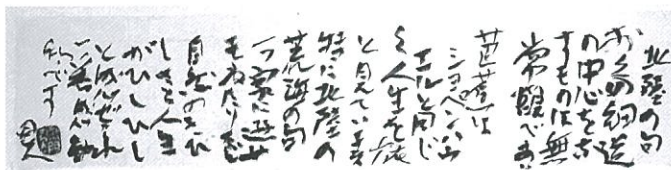 北陸の句
おくの細道
の中心をな
すものは無
常観です
芭蕉は
ショペンハウ
エルと同じ
く人生を旅
と見ています
特に北陸の
荒海の句
一つ家に遊女
もねたりなど
自然のきび
しさと人生
がひしひし
と感ぜられ
です